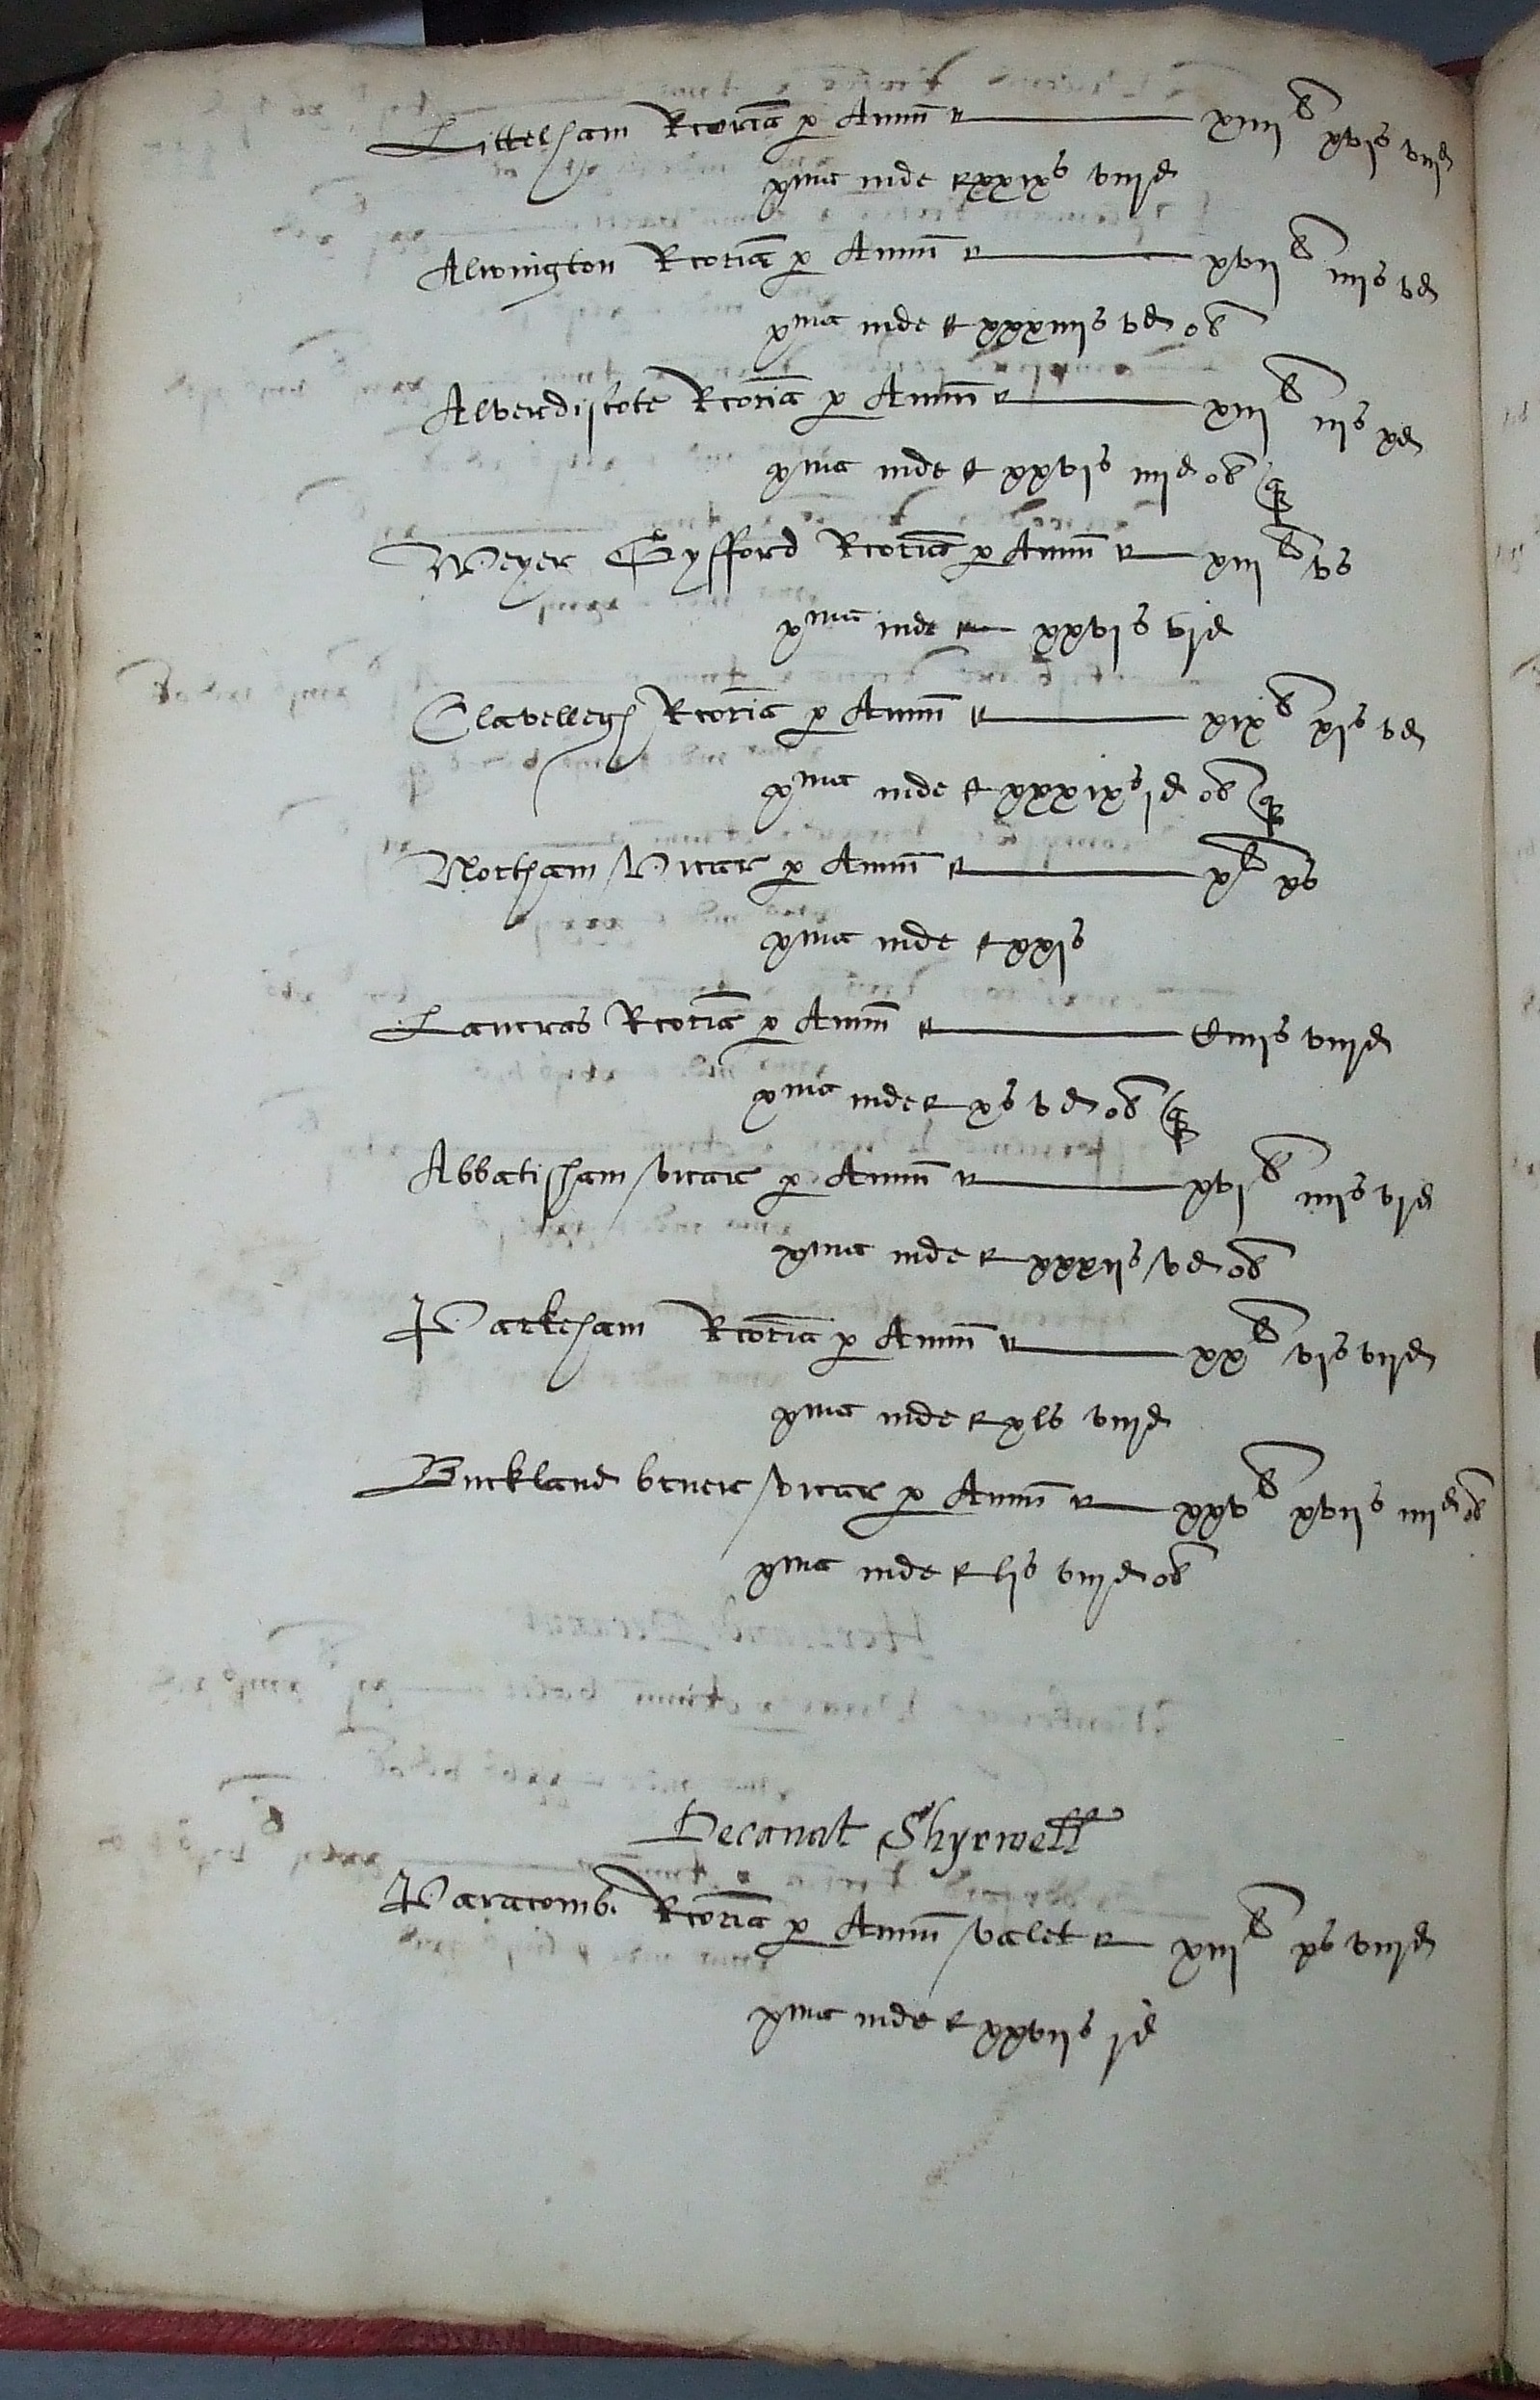 Littelham Rcoria p Annu xiiij li xvjs viijd
xma inde xxixs viijd
Alwington Rcoria p Annu xvij li iiijs vd
xma inde xxxiiijs vd ob
Alverdiscote Rcoria p Annu xiij li iijs xd
xma inde xxvjs iiijd ob q
Weyer Gyfford Rcoria p Annu xiij li vs
xma inde xxvjs vjd
Clavellegh Rcoria p Annu xix li xjs vd
xma inde xxxixs jd ob q
Northam Vicar p Annu x li xs
xma inde xxjs
Lancras Rcoria p Annu ciiijs viijd
xma inde xs vd ob q
Abbatisham vicar p Annu xvj li iiijs vjd
xma inde xxxijs vd ob
Parkeham Rcoria p Annu xx li vjs viijd
xma inde xls viijd
Buckland bruer vicar p Annu xxv li xvijs iijd ob
xma inde ljs viijd ob
Decanat Shyrwell
Paracomb Rcoria p Annu valet xiij li xs viijd
xma inde xxvijs jd